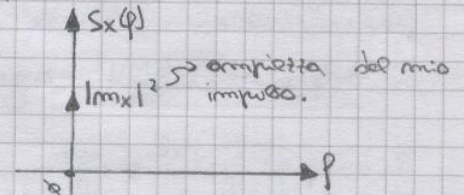 Sx(f)
|mx|² → ampiezza del mio
impulso.
f